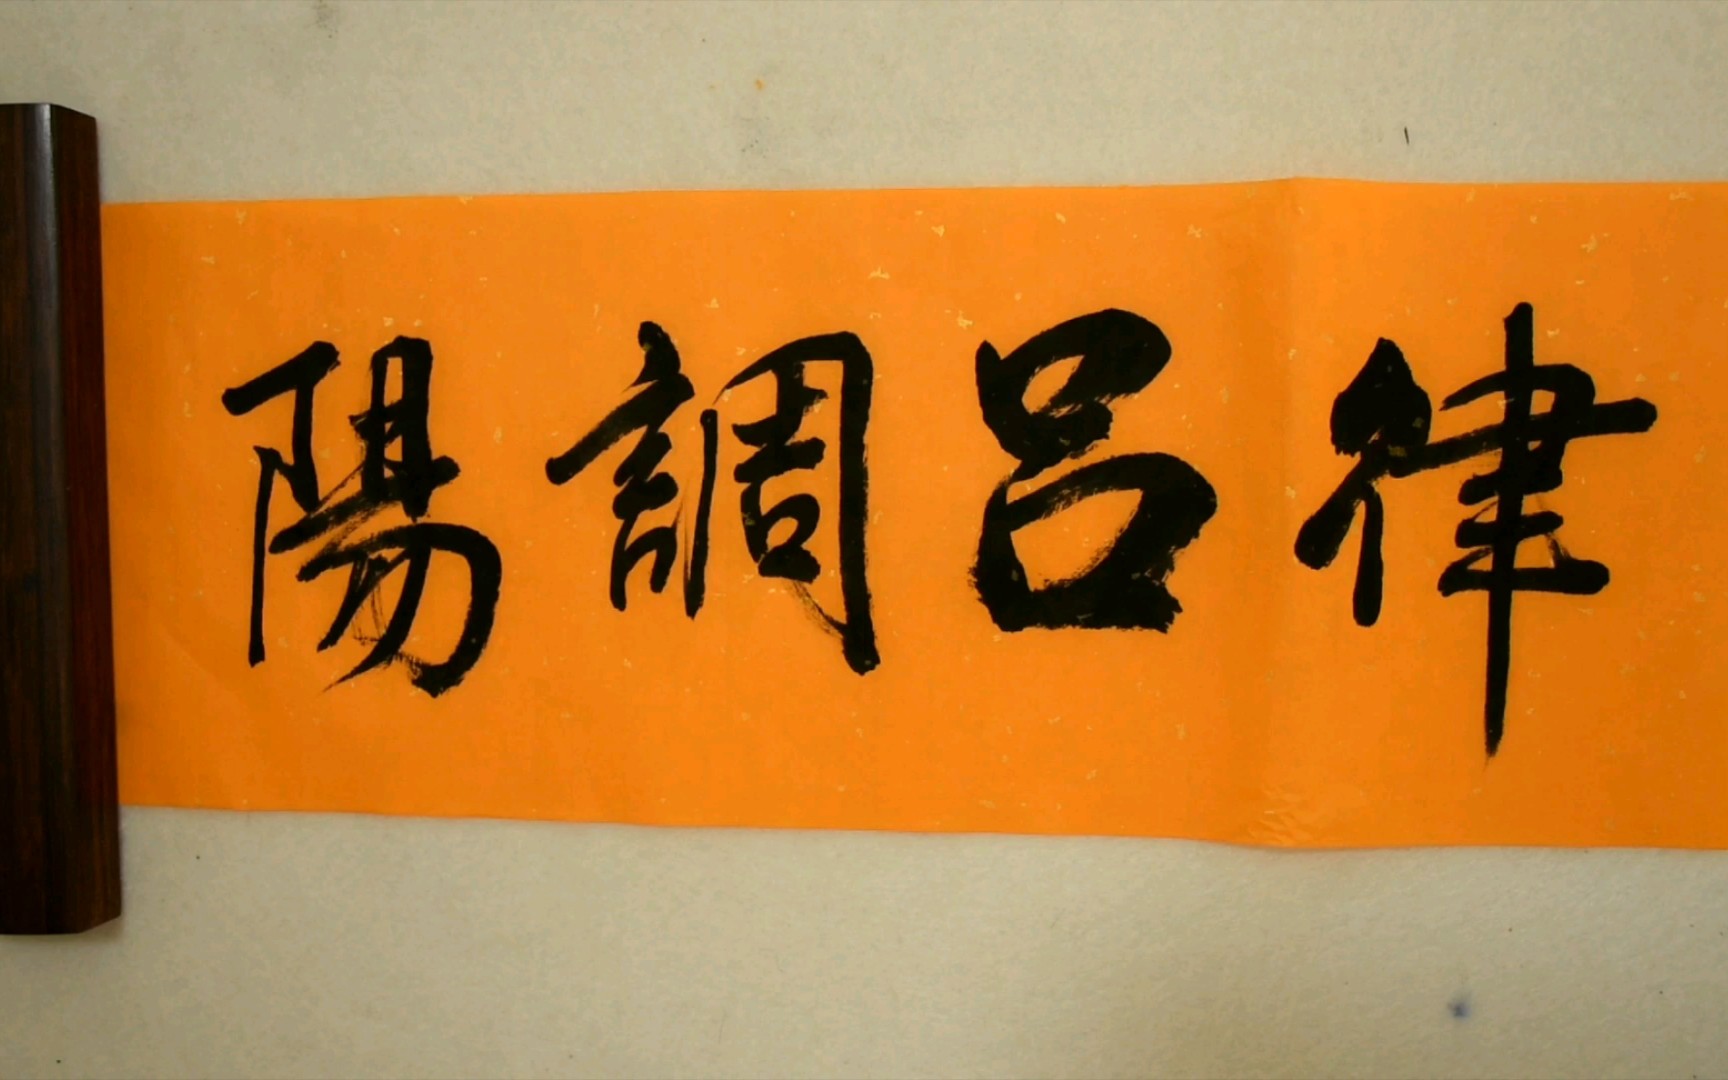 律呂調陽